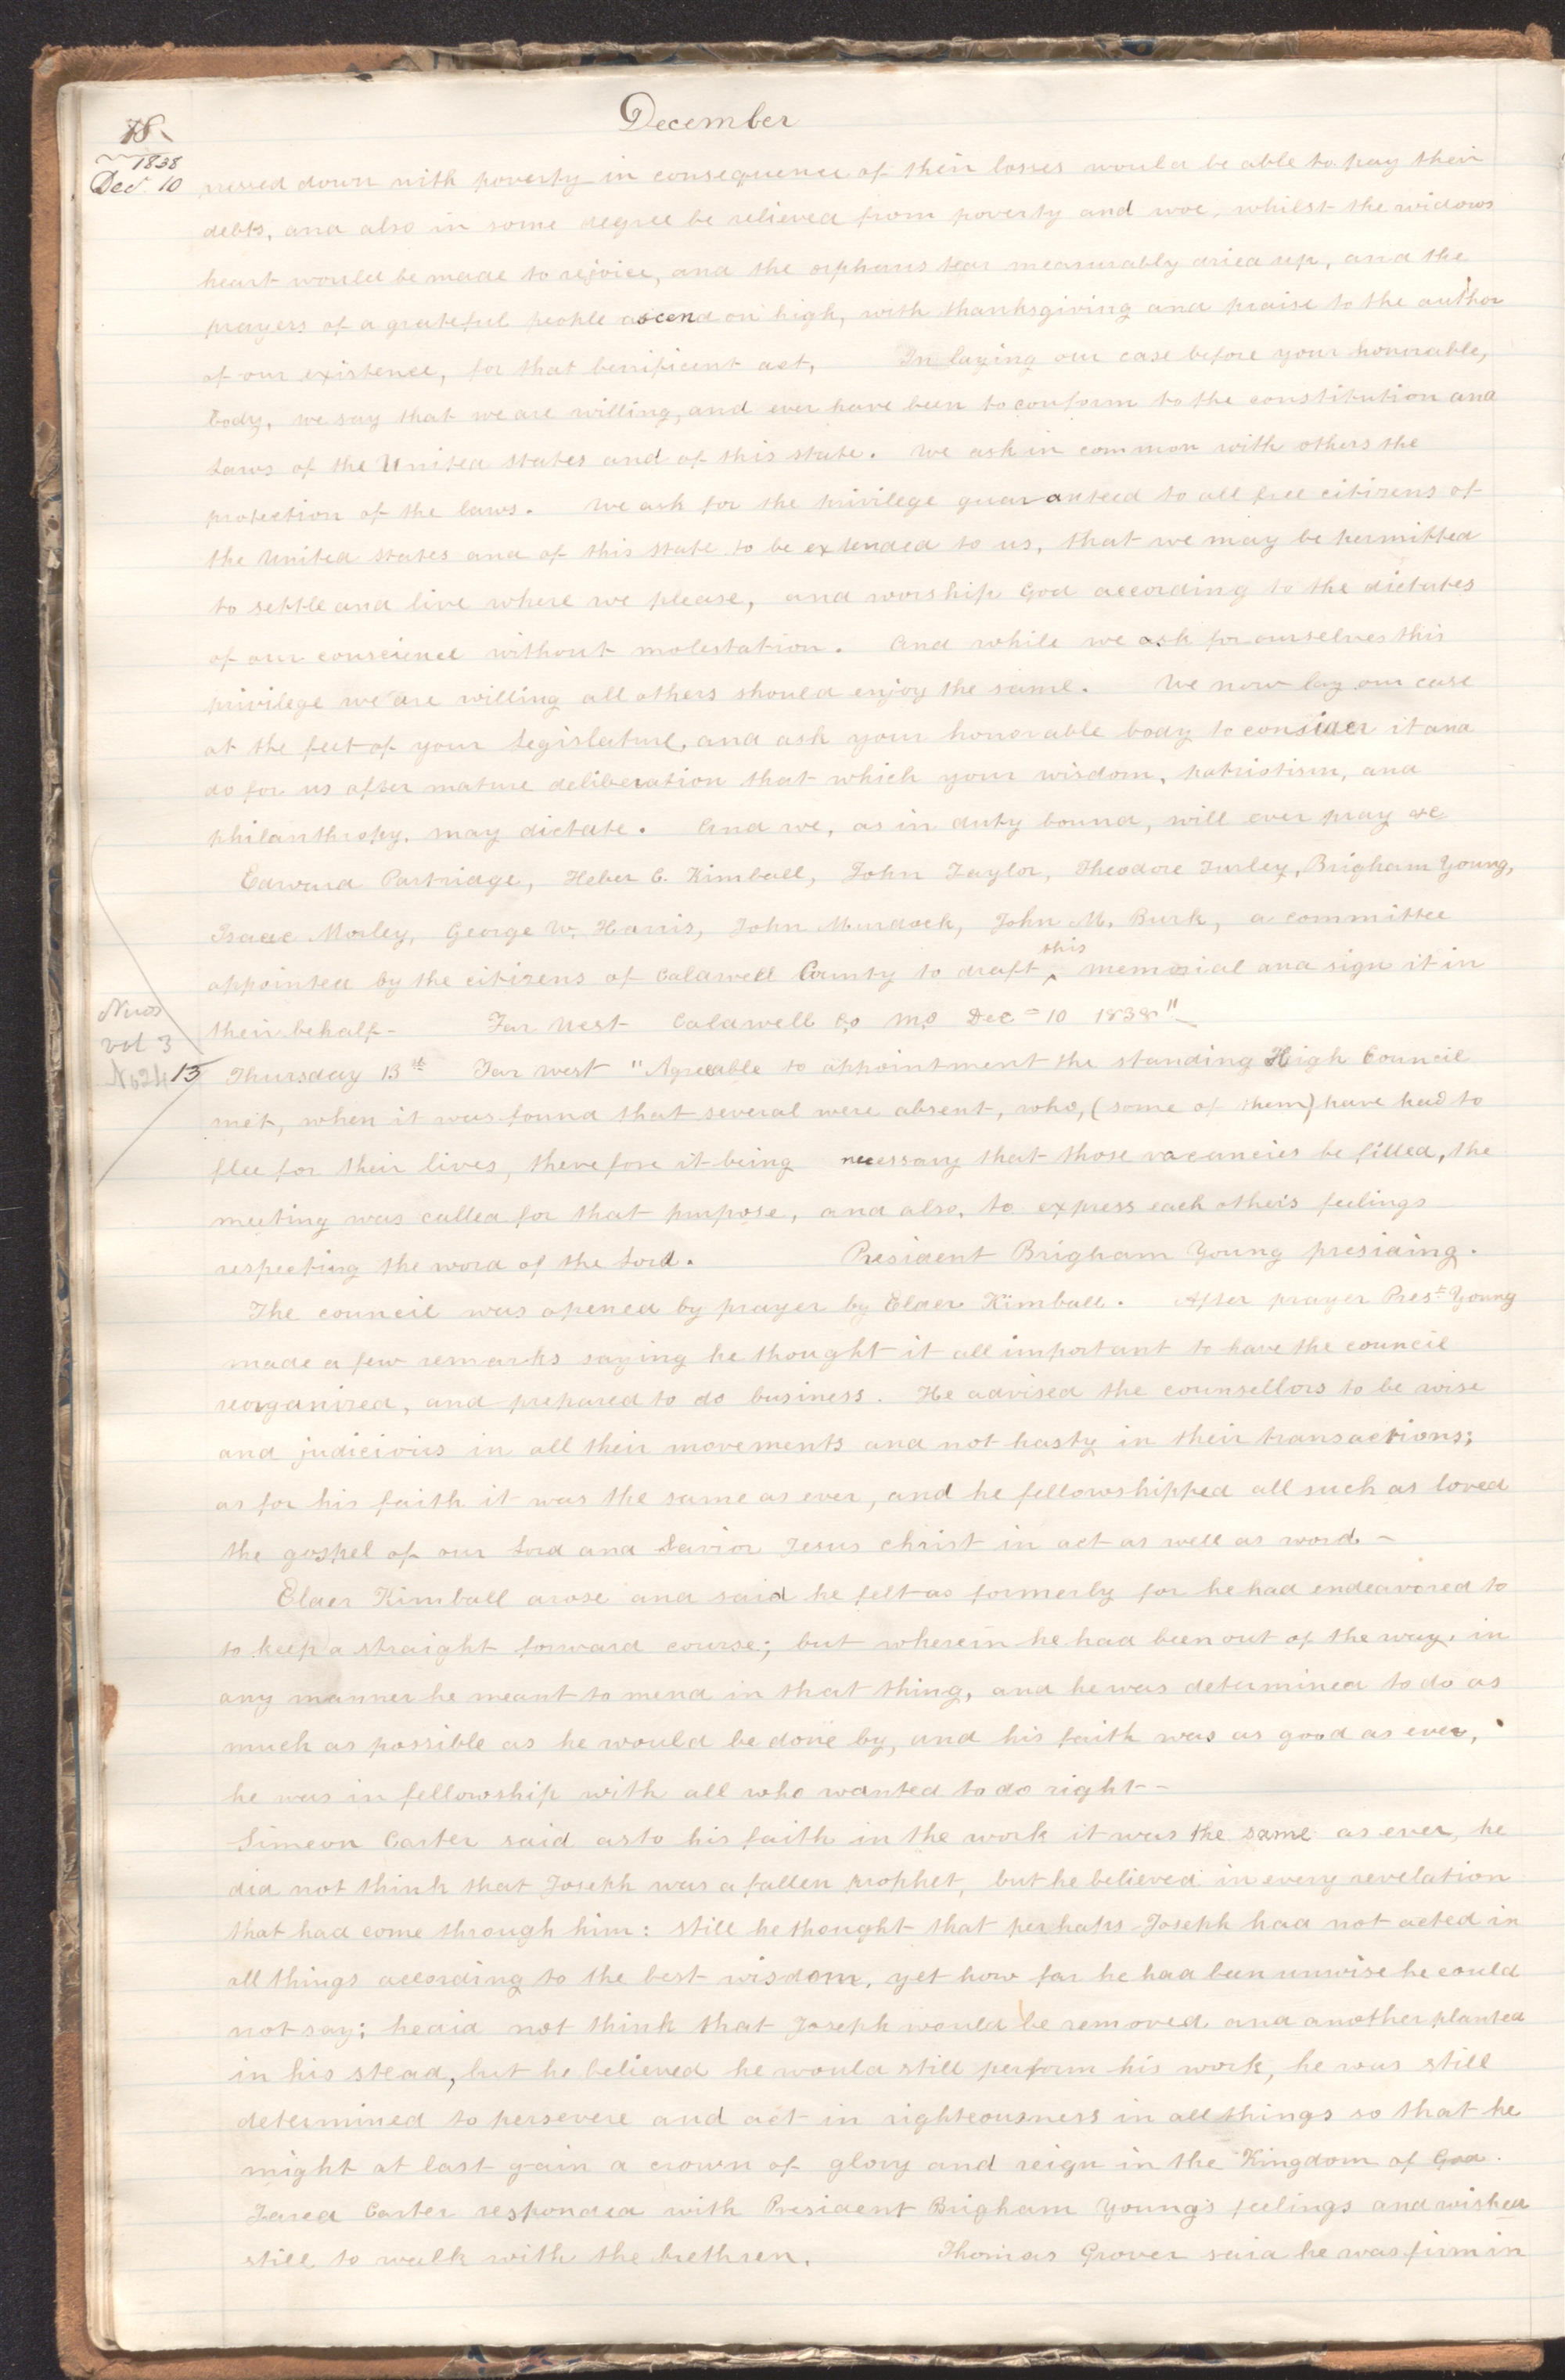 December
18
1838
Dec. 10 pressed down with poverty in consequence of their losses would be able to pay their
debts, and also in some degree be relieved from poverty and woe, whilst the widows
heart would be made to rejoice, and the orphans tear measurably dried up, and the
prayers of a grateful people ascend on high, with thanksgiving and praise to the author
of our existence, for that benificent act, In laying our case before your honorable,
body, we say that we are willing, and ever have been to conform to the constitution and
Laws of the United States and of this state. We ask in common with others the
protection of the laws. We ask for the privilege guaranteed to all free citizens of
the United States and of this state to be extended to us, that we may be permitted
to settle and live where we please, and worship God according to the dictates
of our conscience without molestation. And while we ask for ourselves this
privilege we are willing all others should enjoy the same. We now lay our case
at the feet of your Legislature, and ask your honorable body to consider it and
do for us after mature deliberation that which your wisdom, patriotism, and
philanthropy, may dictate. And we, as in duty bound, will ever pray &c
Edward Partridge, Heber C. Kimball, John Taylor, Theodore Turley, Brigham Young,
Isaac Morley, George W. Harris, John Murdock, John M. Burk, a committee
appointed by the citizens of Caldwell County to draft ^this memorial and sign it in
their behalf- Far West Caldwell Co Mo Dec 10 1838"
Nuos
vol 3
No 24
13 Thursday 13th Far West "Agreeable to appointment the standing High Council
met, when it was found that several were absent, who, (some of them) have had to
flee for their lives, therefore it being necessary that those vacancies be filled, the
meeting was called for that purpose, and also, to express each other's feelings
respecting the word of the Lord. President Brigham Young presiding.
The council was opened by prayer by Elder Kimball. After prayer Prest Young
made a few remarks saying he thought it all important to have the council
reorganized, and prepared to do business. He advised the counsellors to be wise
and judicious in all their movements and not hasty in their transactions;
as for his faith it was the same as ever, and he fellowshipped all such as loved
the gospel of our Lord and Savior Jesus Christ in act as well as word. -
Elder Kimball arose and said he felt as formerly for he had endeavored to
to keep a straight forward course; but wherein he had been out of the way, in
any manner he meant to mend in that thing, and he was determined to do as
much as possible as he would be done by, and his faith was as good as ever,
he was in fellowship with all who wanted to do right -
Simeon Carter said as to his faith in the work it was the same as ever, he
did not think that Joseph was a fallen prophet, but he believed in every revelation
that had come through him: still he thought that perhaps Joseph had not acted in
all things according to the best wisdom, yet how far he had been unwise he could
not say; he did not think that Joseph would be removed and another planted
in his stead, but he believed he would still perform his work, he was still
determined to persevere and act in righteousness in all things so that he
might at last gain a crown of glory and reign in the Kingdom of God.
Jared Carter responded with President Brigham Young's feelings and wished
still to walk with the brethren. Thomas Grover said he was firm in